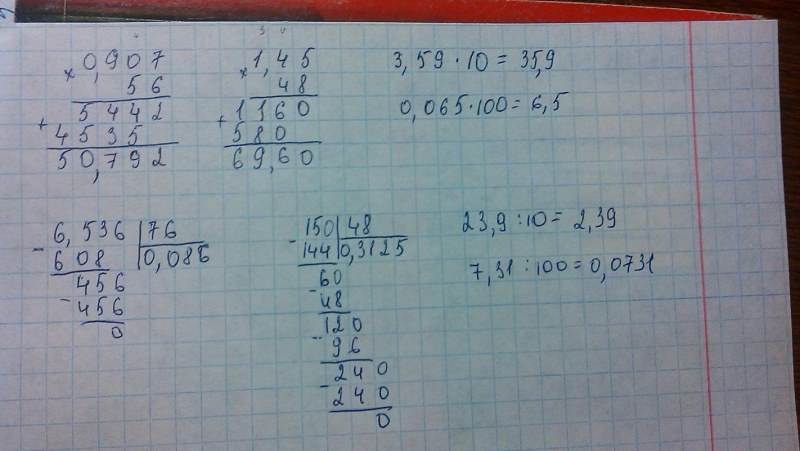 × 0,907
56
+ 5442
4535
50,792
× 1,45
48
+ 1160
580
69,60
3,59 · 10 = 35,9
0,065 · 100 = 6,5
- 6,536 | 76
608 | 0,086
- 456
456
0
- 150 | 48
144 | 0,3125
- 60
48
- 120
96
- 240
240
0
23,9 : 10 = 2,39
7,31 : 100 = 0,0731